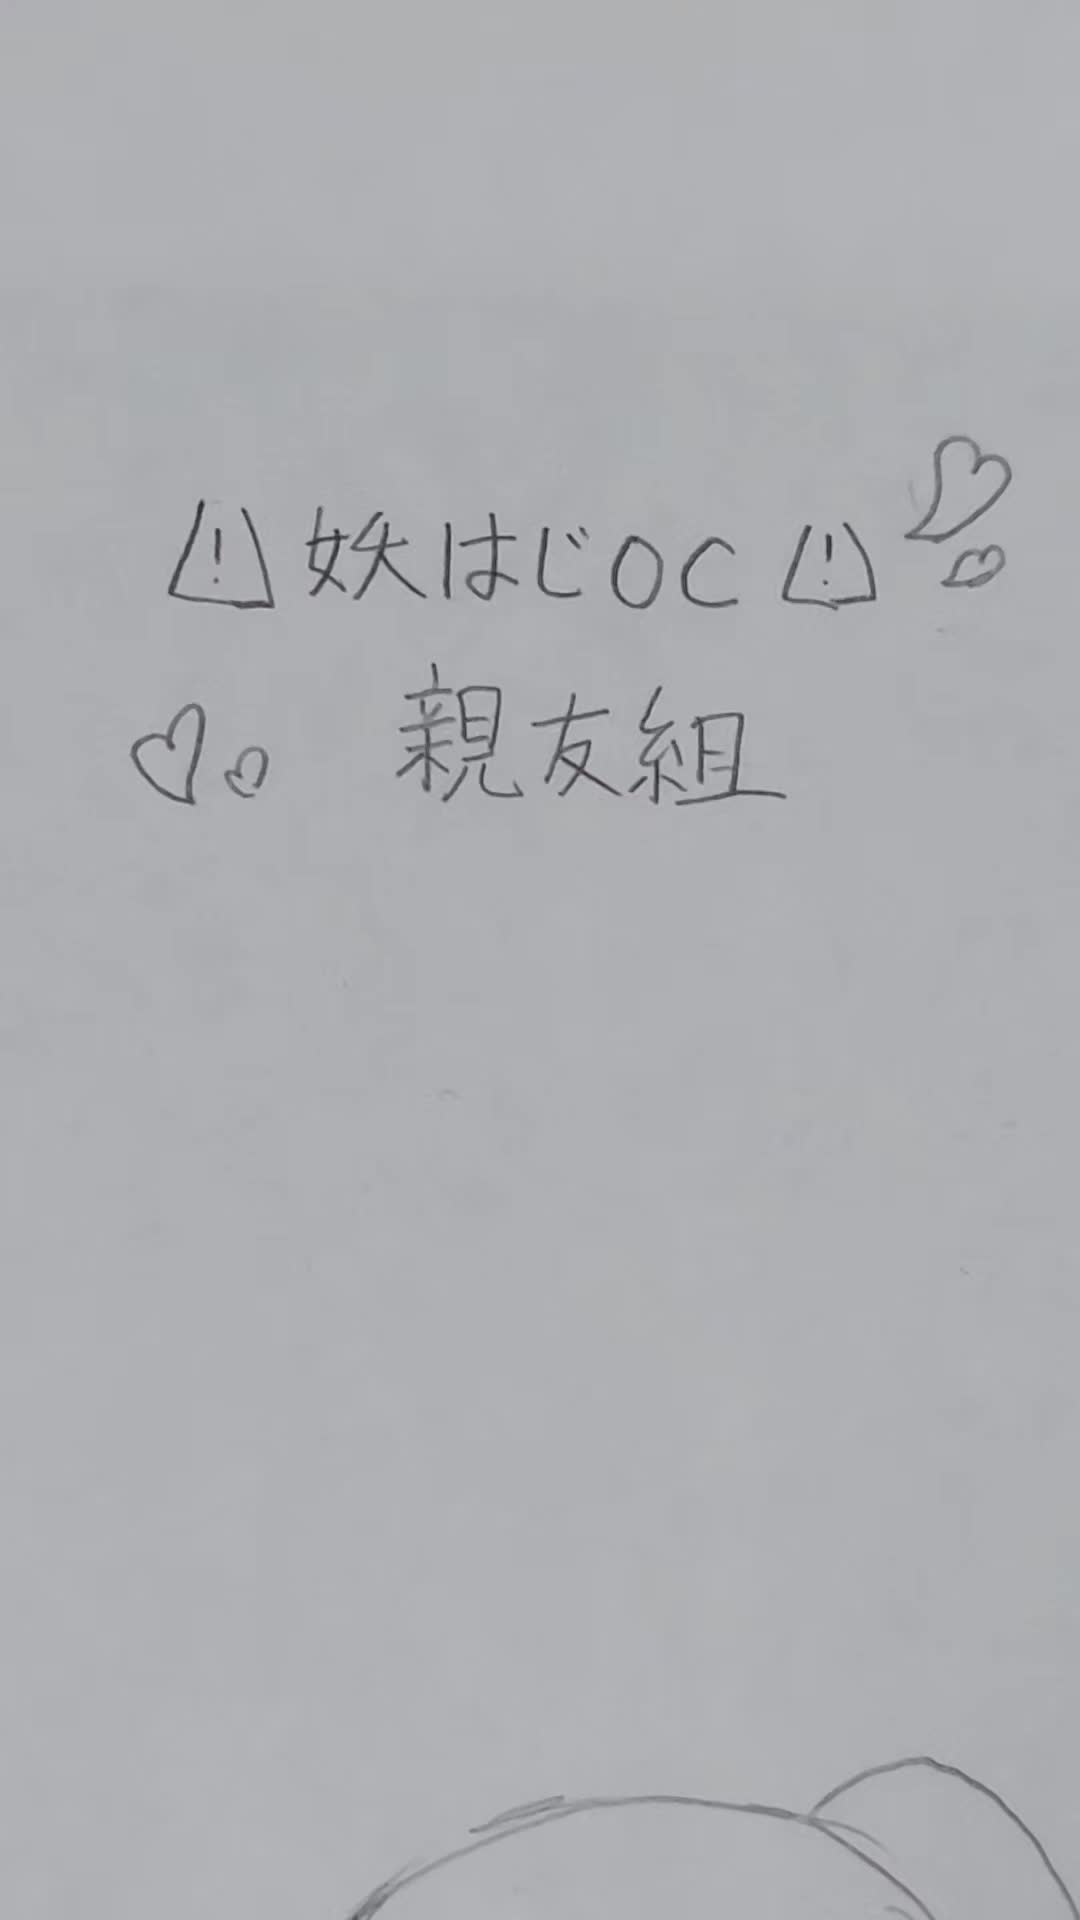 ⚠妖はじOC⚠
親友組